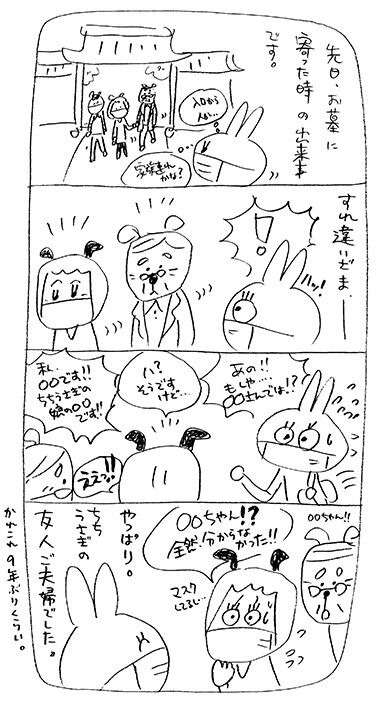 先日、お墓に
寄った時の出来事
です。
入口から
人が…
家族連れ
かな?
すれ違いざま、
!
ハッ!
あの!!
もしや…
〇〇さんでは!?
ハ?
そうです
けど…
私、
〇〇です!!
ちちうさぎの
娘の〇〇
です!!
ええっ!!
〇〇ちゃん!!
〇〇ちゃん!?
全然、分からな
かった!!
マスク
してるし…
やっぱり。
ちち
うさぎの
友人ご夫婦でした。
かれこれ9年ぶりくらい。